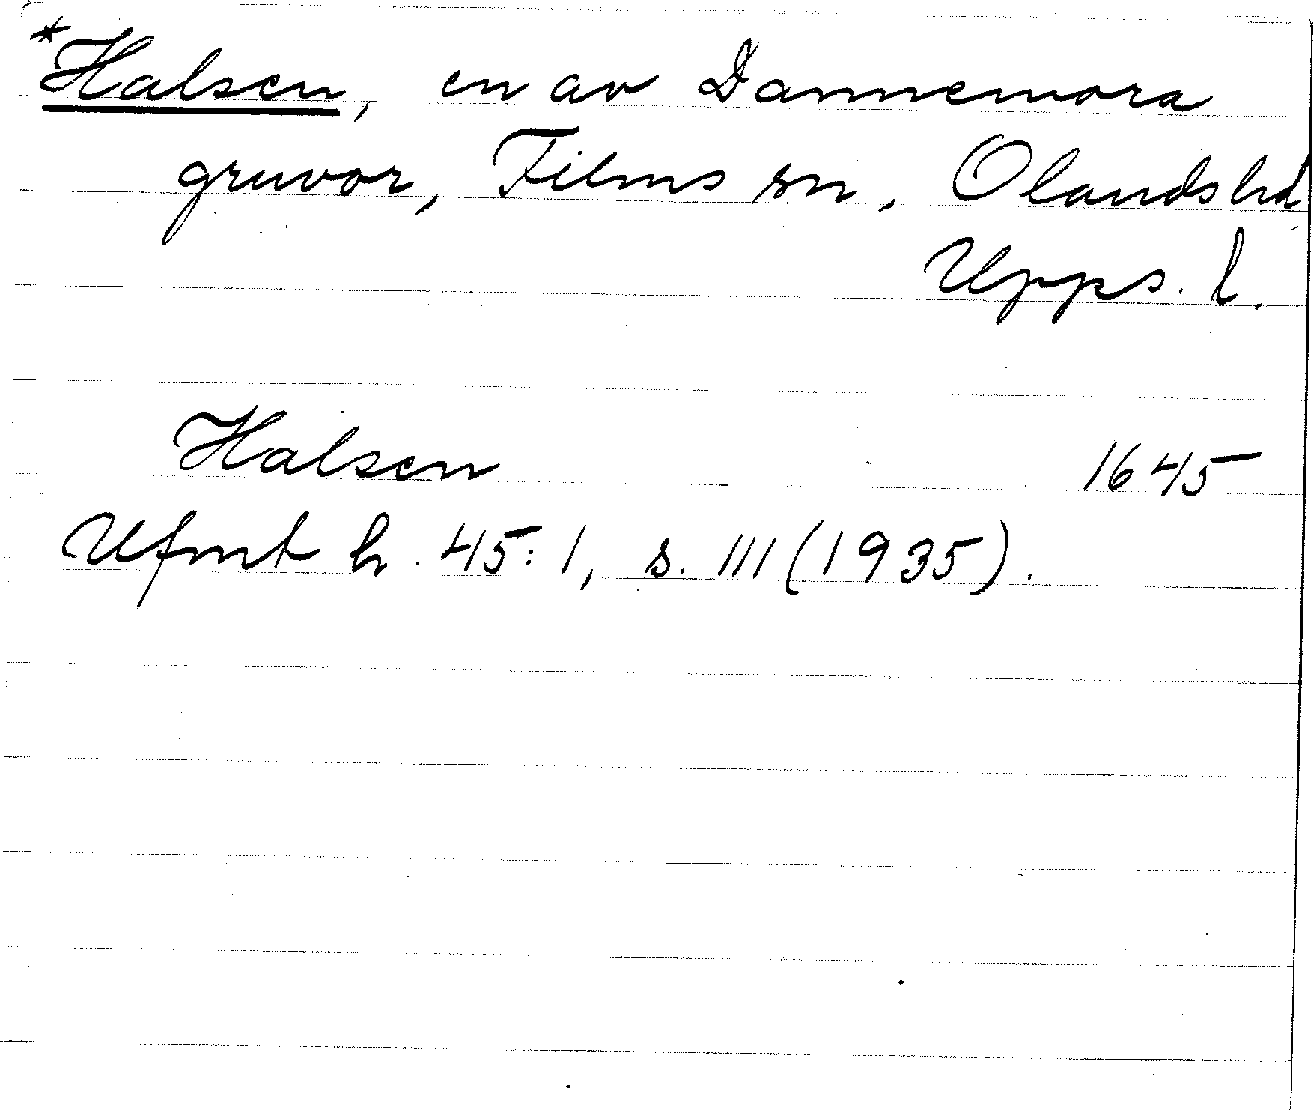 *Halsen, en av Dannemora
gruvor, Films sn, Olands hd,
Upps. l.
Halsen 1645
Ufmt h. 45:1, s. 111 (1935).